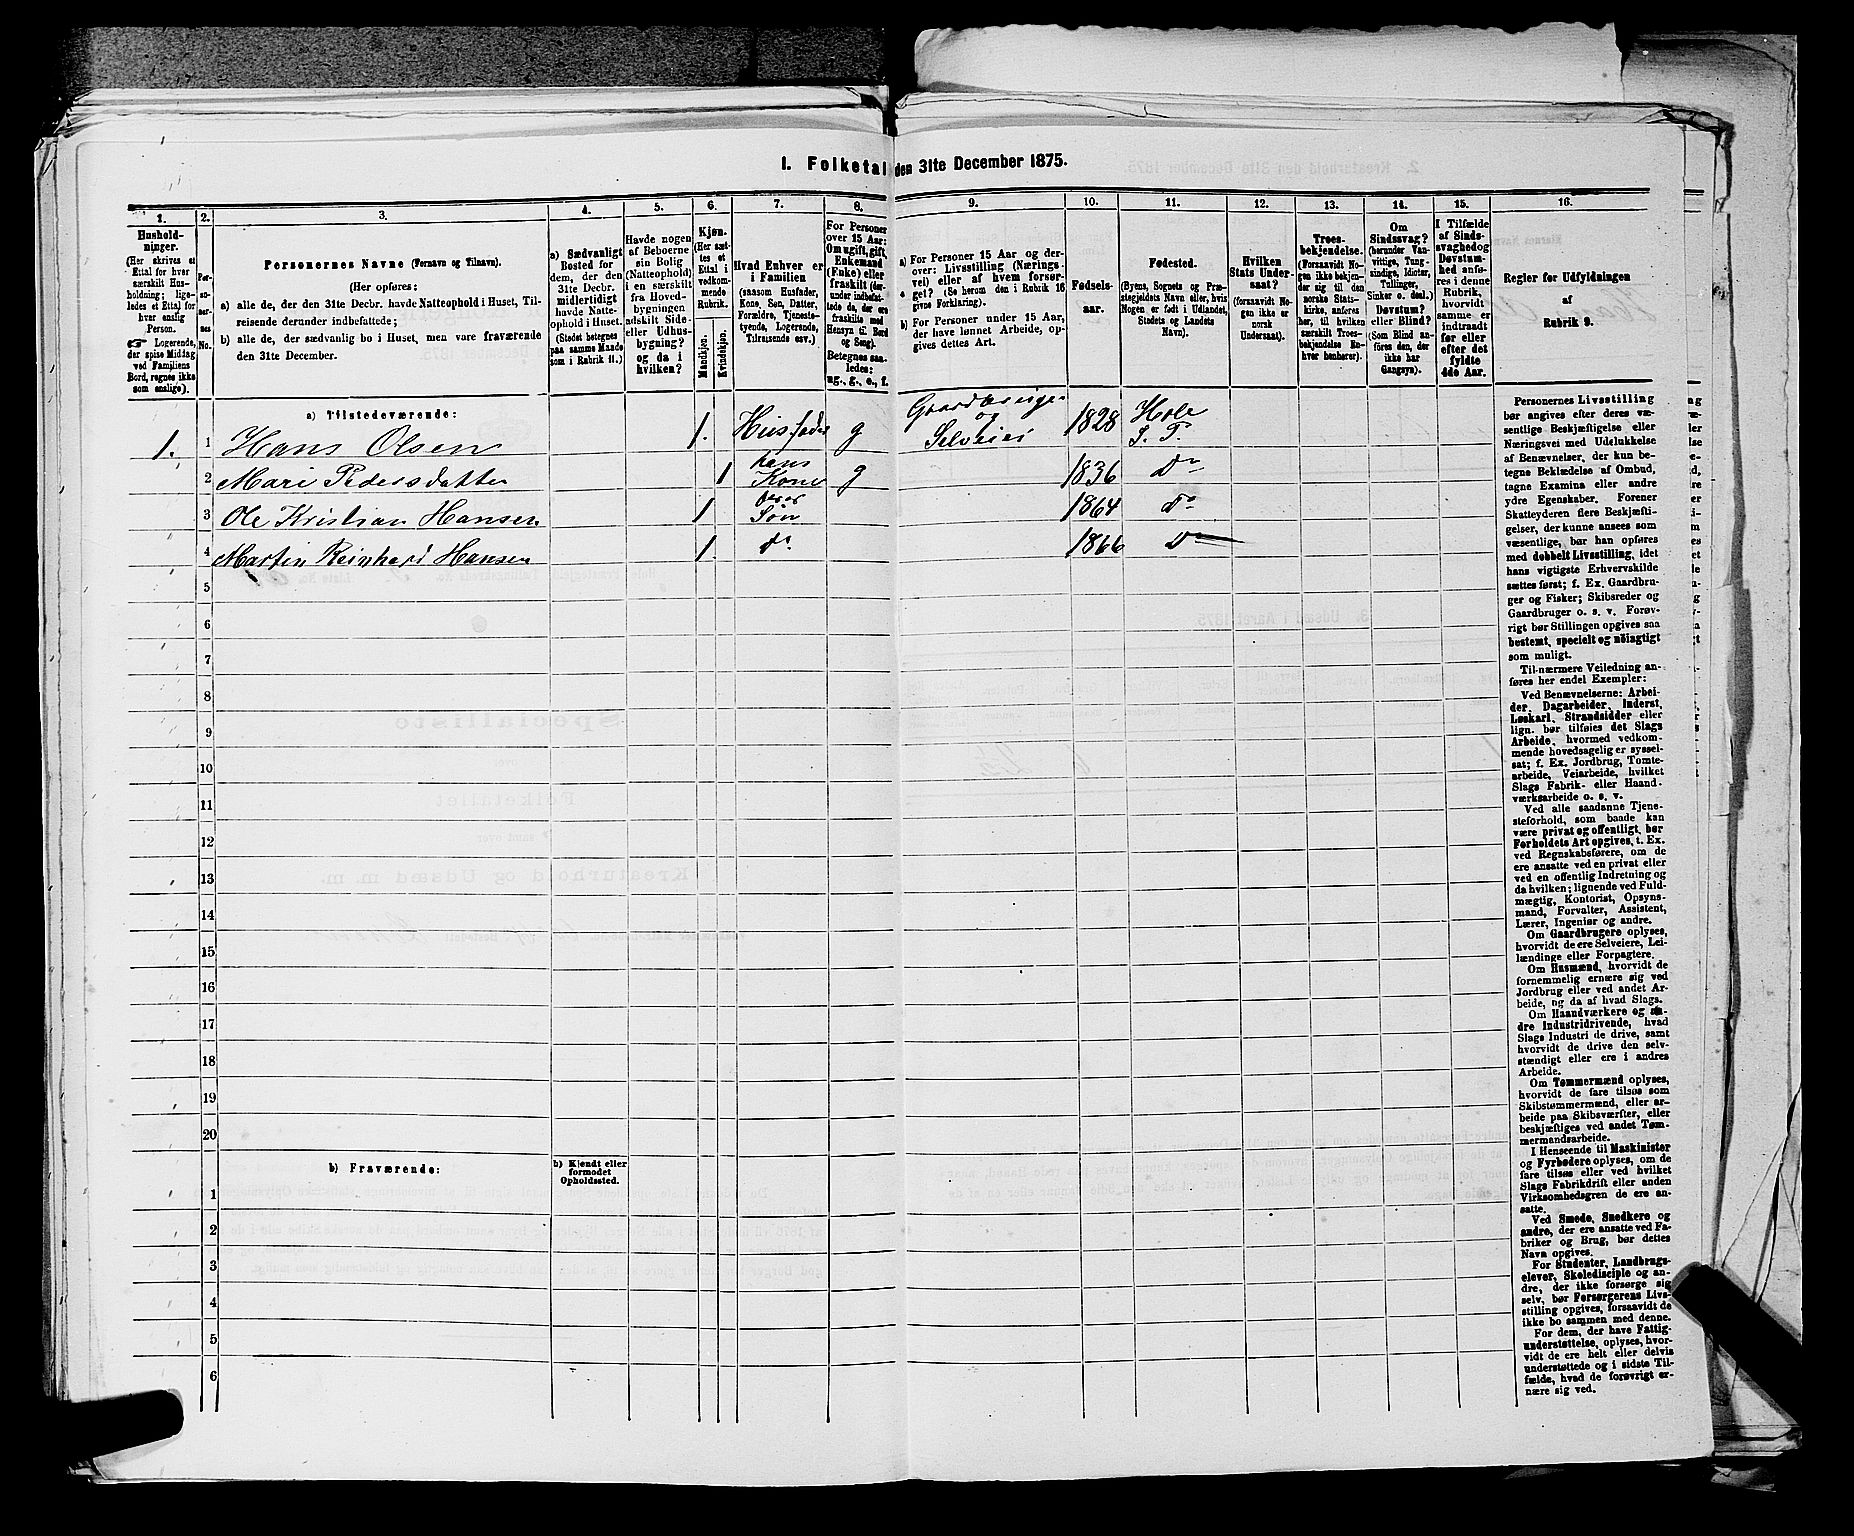 I. Folketal den 31te December 1875.
1. 2. 3. 4. 5. 6. 7. 8. 9. 10. 11. 12. 13. 14. 15. 16.
Hushold-
ninger.
(Her skrives et
Ettal for hver
særskilt Hus-
holdning; lige-
ledes et Ettal for
hver enslig
Person.
☞ Logerende,
der spise Middag
ved Familiens
Bord, regnes ikke
som enslige).
Per-
so-
ner-
nes
No.
Personernes Navne (Fornavn og Tilnavn).
(Her opføres:
a) alle de, der den 31te Decbr. havde Natteophold i Huset, Til-
reisende derunder indbefattede;
b) alle de, der sædvanlig bo i Huset, men vare fraværende
den 31te December.
a) Sædvanligt
Bosted for
dem, der den
31te Decbr.
midlertidigt
havde Natte-
ophold i Huset.
(Stedet betegnes
paa samme Maade
som i Rubrik 11.)
Havde nogen
af Beboerne
sin Bolig
(Natteophold)
i en særskilt
fra Hoved-
bygningen
adskilt Side-
eller Udhus-
bygning?
og da i
hvilken?
Kjøn.
(Her sæt-
tes et
Ettal i
vedkom-
mende
Rubrik.
Mandkjøn.
Kvindekjøn.
Hvad Enhver er
i Familien
(saasom Husfader,
Kone, Søn, Datter,
Forældre, Tjeneste-
tyende, Logerende,
Tilreisende osv.)
For Personer
over 15 Aar:
Om ugift, gift,
Enkemand
(Enke) eller
fraskilt (der-
under indbefat-
tede de, der ere
fraskilte med
Hensyn til Bord
og Seng).
Betegnes saa-
ledes:
ug., g., e., f.
a) For Personer 15 Aar og der-
over: Livsstilling (Nærings-
vei) eller af hvem forsør-
get? (Se herom den i Rubrik 16
givne Forklaring).
b) For Personer under 15 Aar,
der have lønnet Arbeide, op-
gives dettes Art.
Fødsels-
aar.
Fødested.
(Byens, Sognets og Præ-
stegjeldets Navn eller, hvis
Nogen er født i Udlandet,
Stedets og Landets
Navn).
Hvilken
Stats Under-
saat?
(forsaavidt No-
gen ikke er
norsk
Undersaat).
Troes-
bekjendelse.
(Forsaavidt No-
gen ikke bekjen-
der sig til den
norske Stats-
kirke, anføres
her, til hvilken
særskilt Troes-
bekjendelse En-
hver henhører).
Om
Sindssvag?
(herunder Van-
vittige, Tung-
sindige, Idioter,
Tullinger,
Sinker o. desl.)
Døvstum?
eller Blind?
(Som Blind an-
føres den, der
ikke har
Gangsyn).
I Tilfælde
af Sinds-
svaghed og
Døvstum-
hed anfø-
res i denne
Rubrik,
hvorvidt
samme er
indtraadt
før eller
efter det
fyldte
4de Aar.
Regler for Udfyldningen
af
Rubrik 9.
a) Tilstedeværende:
1. 1 Hans Olsen 1. Husfader g Gaardbruger og Selveier 1828 Hole S. P.
2 Mari Pedersdatter 1 hans Kone g 1836 Do
3 Ole Kristian Hansen 1 deres Søn 1864 do
4 Martin Reinhard Hansen 1. do 1866 Do
5
6
7
8
9
10
11
12
13
14
15
16
17
18
19
20
b) Fraværende:
b) Kjendt eller
formodet
Opholdssted.
1
2
3
4
5
6
Personernes Livsstilling
bør angives efter deres væ-
sentlige Beskjæftigelse eller
Næringsvei med Udelukkelse
af Benævnelser, der kun be-
tegne Beklædelse af Ombud,
tagne Examina eller andre
ydre Egenskaber. Forener
Skatteyderen flere Beskjæfti-
gelser, der kunne ansees som
væsentlige, bør han opføres
med dobbelt Livsstilling, idet
hans vigtigste Erhvervskilde
sættes først; f. Ex. Gaardbru-
ger og Fisker; Skibsreder og
Gaardbruger o. s. v. Forøv-
rigt bør Stillingen opgives saa
bestemt, specielt og nøiagtigt
som muligt.
Til nærmere Veiledning an-
føres her endel Exempler:
Ved Benævnelserne: Arbei-
der, Dagarbeider, Inderst,
Løskarl, Strandsidder eller
lign. bør tilføies det Slags
Arbeide, hvormed vedkom-
mende hovedsagelig er syssel-
sat; f. Ex. Jordbrug, Tomte-
arbeide, Veiarbeide, hvilket
Slags Fabrik- eller Haand-
værksarbeide o. s. v.
Ved alle saadanne Tjene-
steforhold, som baade kan
være privat og offentligt, bør
Forholdets Art opgives, t. Ex.
ved Regnskabsførere, om de
ere ansatte ved en privat eller
ved en offentlig Indretning og
da hvilken; lignende ved Fuld-
mægtig, Kontorist, Opsyns-
mand, Forvalter, Assistent,
Lærer, Ingeniør og andre.
Om Gaardbrugere oplyses,
hvorvidt de ere Selveiere, Lei-
lændinge eller Forpagtere.
Om Husmænd, hvorvidt de
fornemmelig ernære sig ved
Jordbrug eller ved andet Ar-
beide, og da af hvad Slags.
Om Haandværkere og an-
dre Industridrivende, hvad
Slags Industri de drive, samt
hvorvidt de drive den selv-
stændigt eller ere i andres
Arbeide.
Om Tømmermænd oplyses,
hvorvidt de fare tilsøs som
Skibstømmermænd, eller ar-
beide paa Skibsværfter, eller
beskjæftiges ved andet Tøm-
mermandsarbeide.
I Henseende til Maskinister
og Fyrbødere oplyses, om de
fare tilsøs eller ved hvilket
Slags Fabrikdrift eller anden
Virksomhedsgren de ere an-
satte.
Ved Smede, Snedkere og
andre, der ere ansatte ved Fa-
briker og Brug, bør dettes
Navn opgives.
For Studenter, Landbrugs-
elever, Skoledisciple og an-
dre, der ikke forsørge sig
selv, bør Forsørgerens Livs-
stilling opgives, forsaavidt de
ikke bo sammen med denne.
For dem, der have Fattig-
understøttelse, oplyses, hvor-
vidt de ere helt eller delvis
understøttede og i sidste Til-
fælde, hvad de forøvrigt er-
nære sig ved.